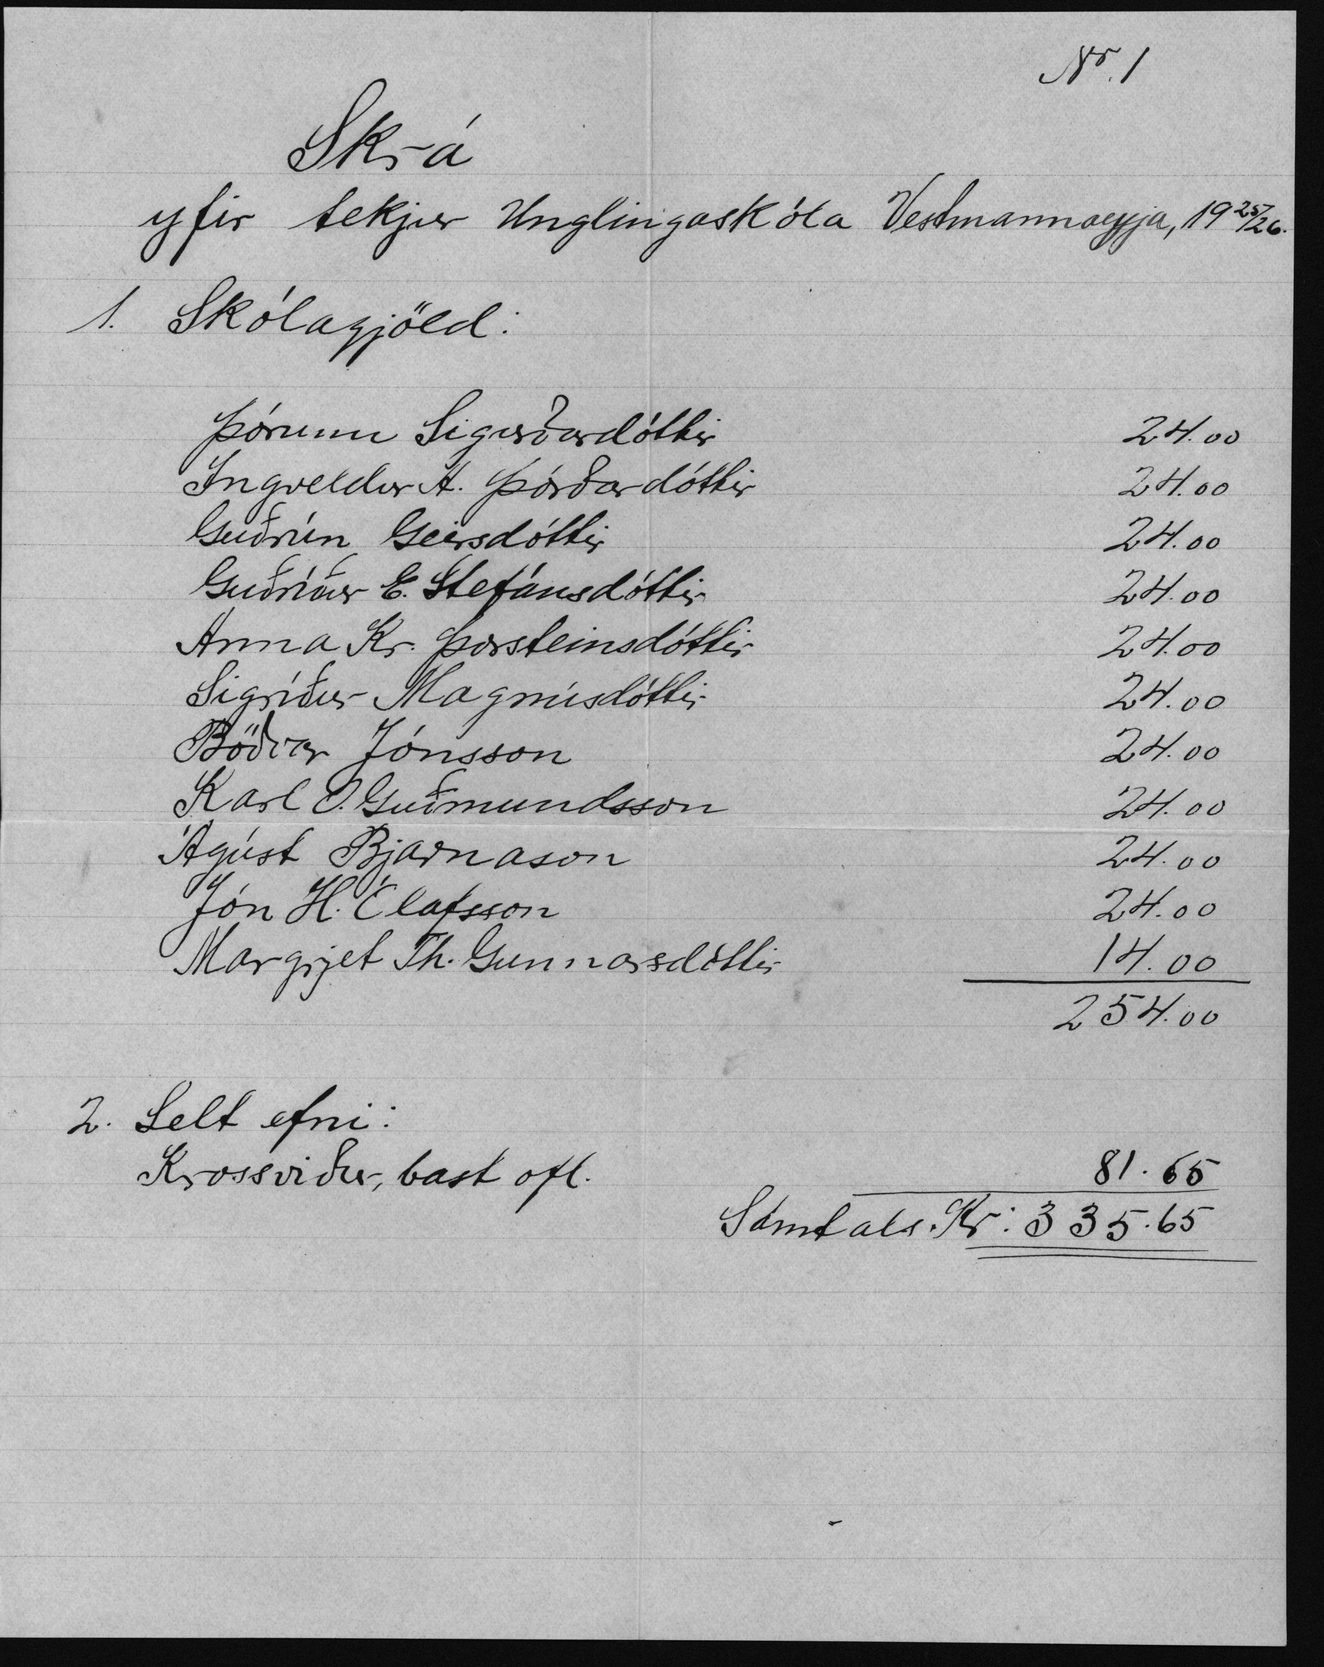 Nr. 1
Skrá
yfir tekjur Unglingaskóla Vestmannaeyja, 1925/26.
1. Skólagjöld:
Þórunn Sigurðardóttir 24.00
Ingveldur A. Þórðardóttir 24.00
Guðrún Geirsdóttir 24.00
Guðríður E. Stefánsdóttir 24.00
Anna Kr. Þorsteinsdóttir 24.00
Sigríður Magnúsdóttir 24.00
Böðvar Jónsson 24.00
Karl O. Guðmundsson 24.00
Ágúst Bjarnason 24.00
Jón H. Ólafsson 24.00
Margrjet Th. Gunnarsdóttir 14.00
254.00
2. Selt efni:
Krossviður, bast ofl. 81.65
Samtals. Kr: 335.65